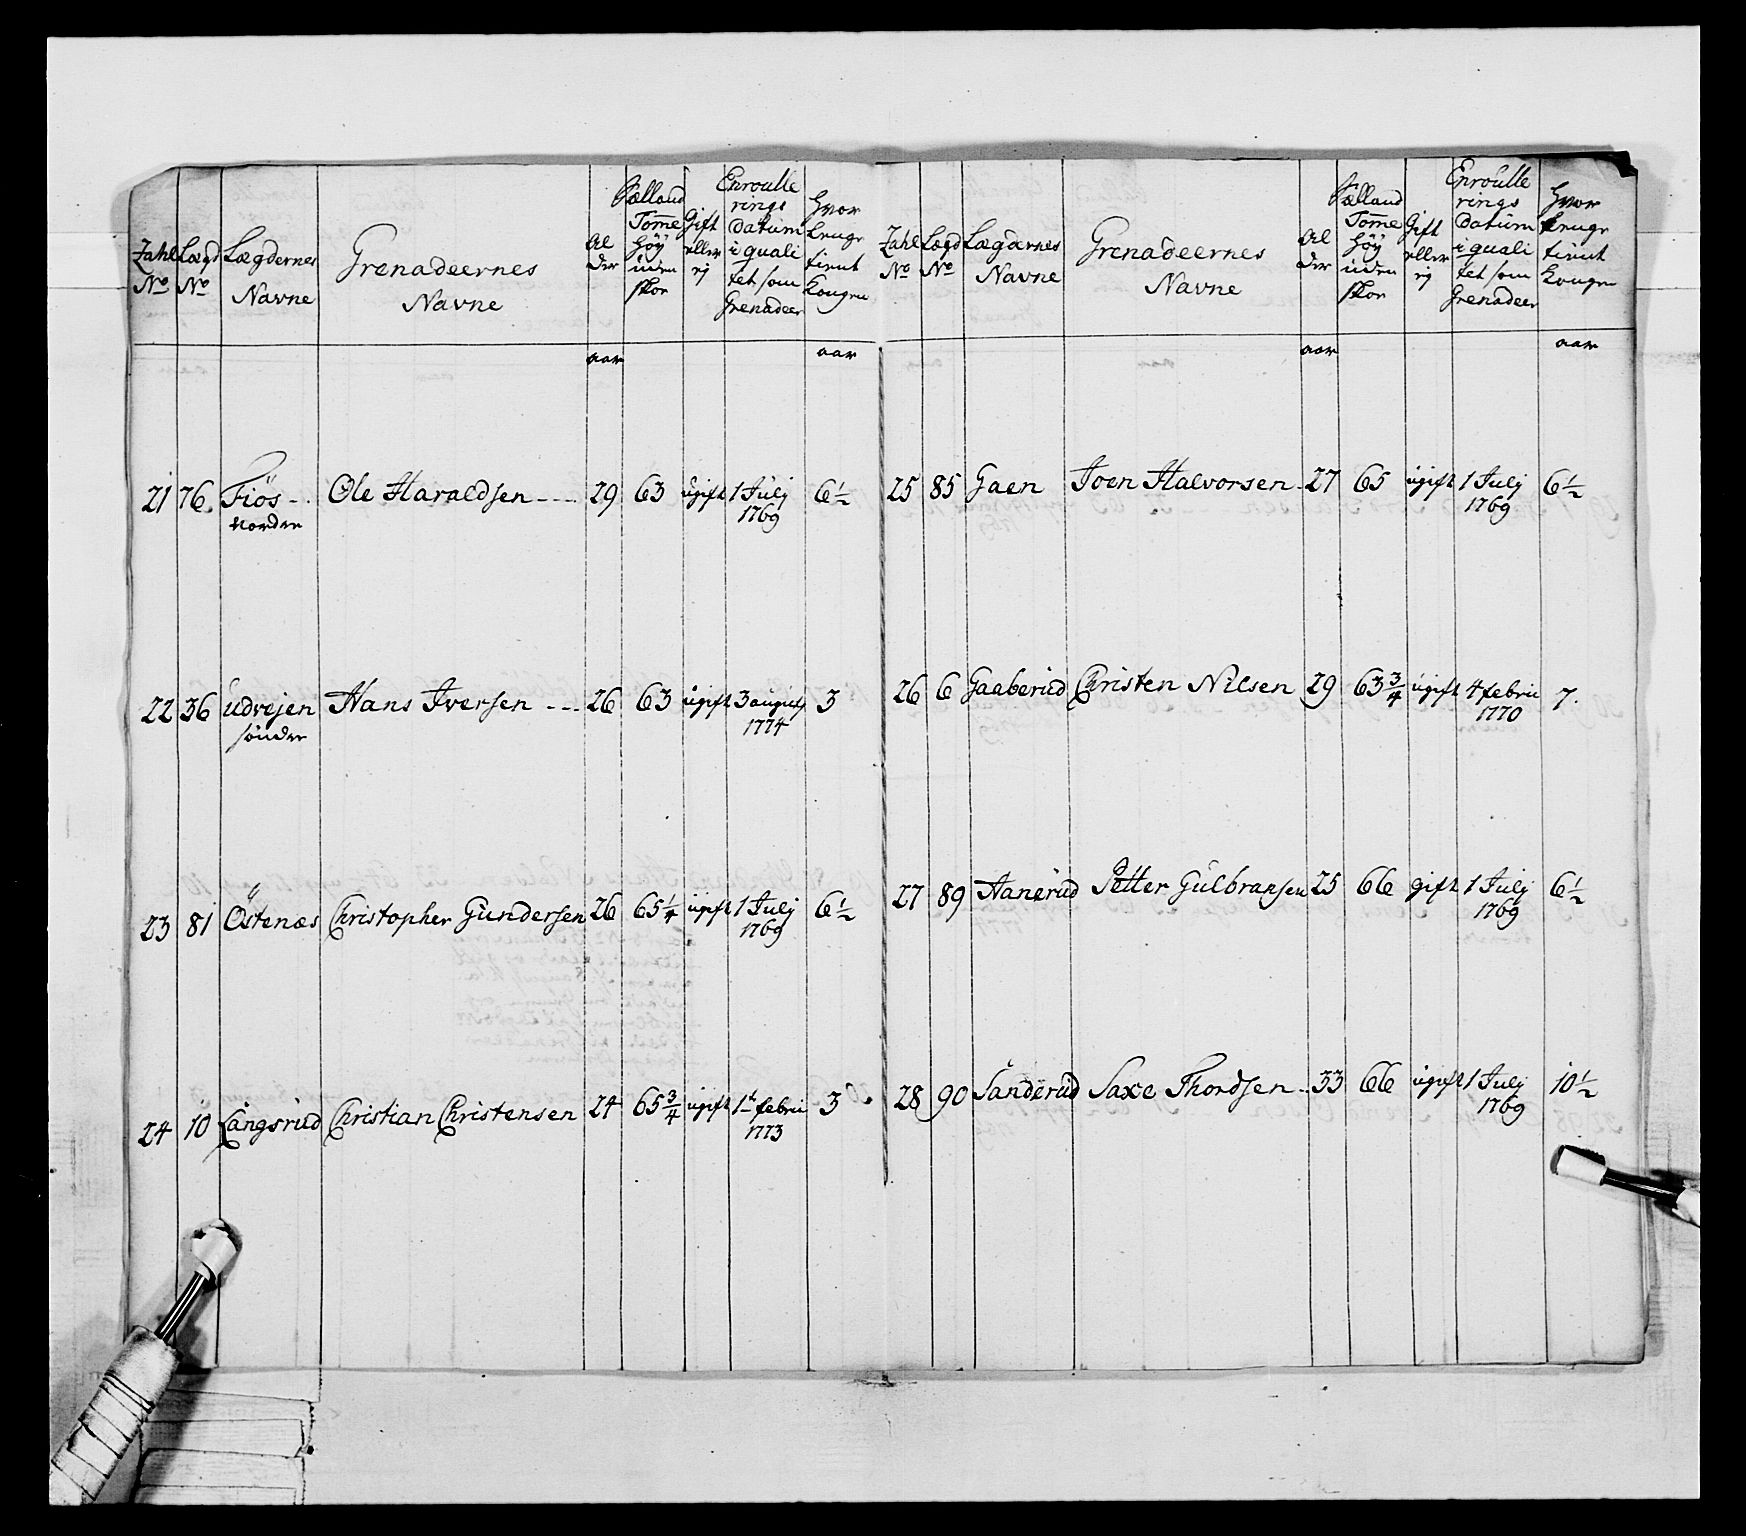 Zahl No | Lægd No | Lægdernes Navne | Grenadeernes Navne | Al der | Sælland Tom̄e höÿ uden skoe | Gift eller ej | Enroulle rings datum i quali tet som Grenadeer | Hvor lenge tient Kongen
aar | aar
21 | 76 | Fiös nordre | Ole Haraldsen | 29 | 63 | ugift | 1 Julj 1769 | 6½
22 | 36 | Udvejen söndre | Hans Iversen | 26 | 63 | ugift | 3 august 1774 | 3
23 | 81 | Östenæs | Christopher Gundersen | 26 | 65¼ | ugift | 1 Julj 1769 | 6½
24 | 10 | Langsrud | Christian Christensen | 24 | 65¾ | ugift | 1t febru 1773 | 3
Zahl No | Lægd No | Lægdernes Navne | Grenadeernes Navne | Al der | Sælland Tom̄e höÿ uden skoe | Gift eller ej | Enroulle rings datum i quali tet som Grenadeer | Hvor lenge tient Kongen
aar | aar
25 | 85 | Gaen | Joen Halvorsen | 27 | 65 | ugift | 1 Julj 1769 | 6½
26 | 6 | Gaaberud | Christen Nilsen | 29 | 63¾ | ugift | 4 febru 1770 | 7.
27 | 89 | Hanerud | Petter Gulbransen | 25 | 66 | gift | 1 Julj 1769 | 6½
28 | 90 | Sanderud | Saxe Thordsen | 33 | 66 | ugift | 1 Julj 1769 | 10½